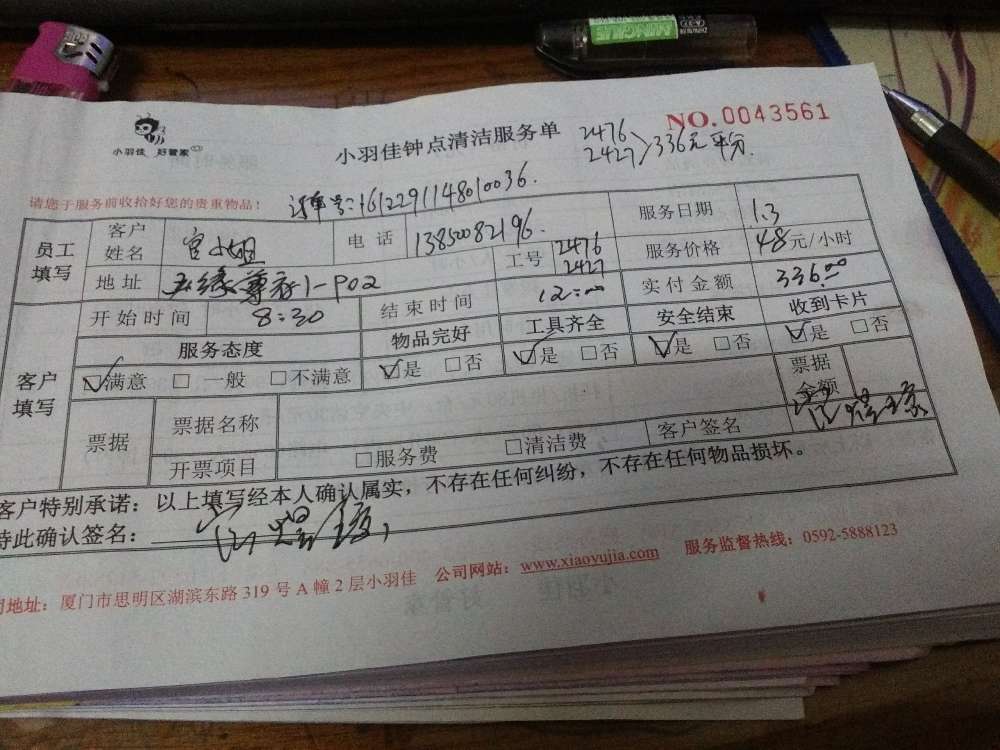 MINGLE
小羽佳 好管家
小羽佳钟点清洁服务单
NO.0043561
2476
2427 336元平分.
请您于服务前收拾好您的贵重物品!
订单号:1612291148010036.
员工填写
客户姓名 官小姐 电话 13850082196. 工号 2476 2427 服务日期 1.3
服务价格 48元/小时
地址 1-P02 实付金额 336.00
开始时间 8:30 结束时间 12:00
客户填写
服务态度 物品完好 工具齐全 安全结束 收到卡片
满意 一般 不满意 是 否 是 否 是 否 是 否
票据 票据名称 票据金额
开票项目 服务费 清洁费 客户签名
客户特别承诺:以上填写经本人确认属实,不存在任何纠纷,不存在任何物品损坏。
特此确认签名:
司地址:厦门市思明区湖滨东路319号A幢2层小羽佳 公司网站:www.xiaoyujia.com 服务监督热线:0592-5888123